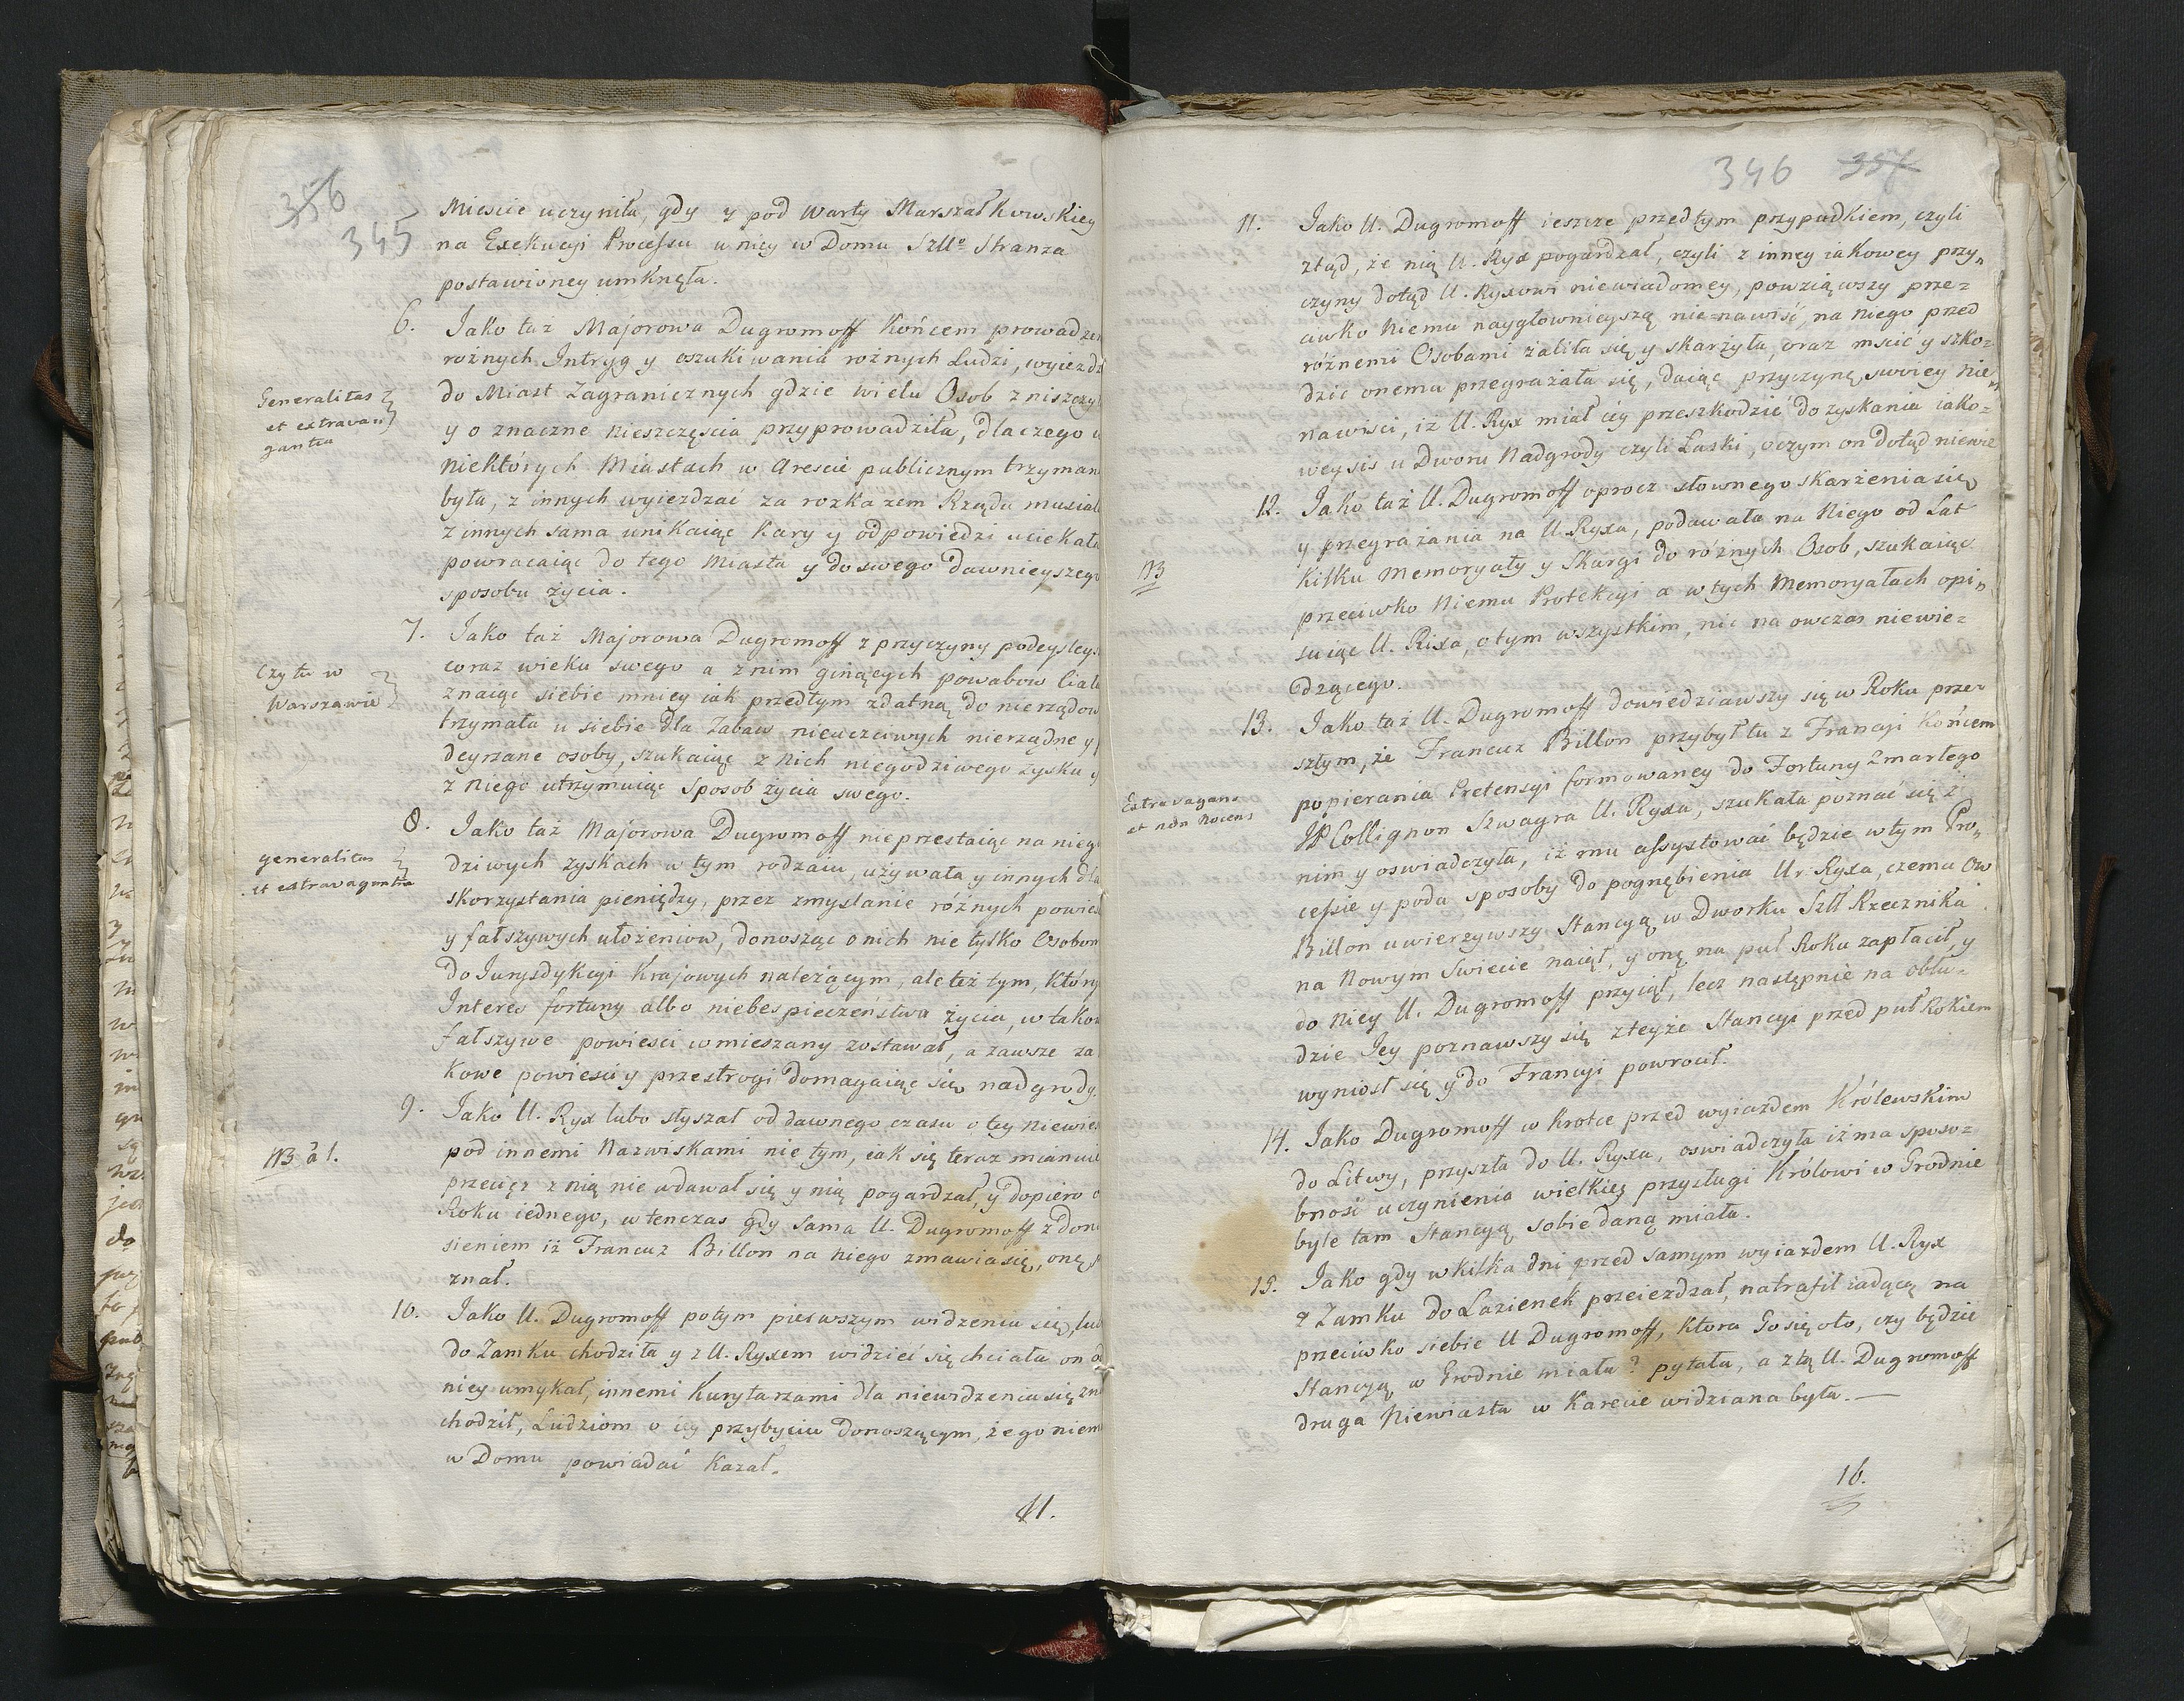 356
345
Miescie uczyniła, gdy y pod warty Marszałkowskiey
na Exekucyi Processu u niey w Domu Szllo Stranza
postawioney umknęła.
6. Jako taż Majorowa Dugromoff Końcem prowadzen
rożnych Intryg y oszukiwania rożnych Ludzi, wyiezdz
Generalitas
et extravan
gantia
do Miast Zagranicznych gdzie wielu Osob zniszczy
y o znaczne nieszczęscia przyprowadziła, dlaczego w
niektórych Miastach w Arescie publicznym trzyman
była, z innych wyiezdzać za rozkazem Rządu musiał
z innych sama unikaiąc Kary y odpowiedzi uciekała
powracaiąc do tego Miasta y do swego dawnieyszego
sposobu życia.
7. Jako taż Majorowa Dugromoff z przyczyny podeysłey
Czy tu w
Warszawie
coraz wieku swego a z nim ginących powabow Ciał
znaiąc siebie mniey iak przedtym zdatną do nierządow
trzymała u siebie dla Zabaw nieuczciwych nierządne y
deyrzane osoby, szukaiąc z nich niegodziwego zysku y
z niego utrzymuiąc sposob życia swego.
8. Jako taż Majorowa Dugromoff nieprzestaiąc na niego
generalitas
et extravagantia
dziwych zyskach w tym rodzaiu, używała y innych dla
skorzystania pieniędzy, przez zmyslanie różnych powies
y fałszywych ułożeniow, donosząc o nich nie tylko Osobom
do Jurysdykcyi Krajowych należącym, ale też tym, Który
Interes fortuny albo niebespieczeństwa życia, w takow
fałszywe powiesci wmieszany zostawał, a zawsze za
Kowe powiesci y przestrogi domagaiąc się nadgrody.
9. Jako U. Ryx lubo słyszał od dawnego czasu o tey niewies
NB á 1.
pod innemi Nazwiskami nie tym, iak się teraz mianuie
przecięz z nią nie wdawał się y nią pogardzał, y dopiero o
Roku iednego, w tenczas gdy sama U. Dugromoff z don
sieniem iż Francuz Billon na niego zmawia się, onę p
znał.
10. Jako U. Dugromoff potym pierwszym widzeniu się, lub
do Zamku chodziła y z U. Ryxem widzieć się chciała on od
niey umykał, innemi Kurytarzami dla niewidzenia się z n
chodził, Ludziom o iey przybyciu donoszącym, że go niem
w Domu powiadać Kazał.
11.
346 357
11. Jako U. Dugromoff ieszcze przed tym przypadkiem, czyli
ztąd, że nią U. Ryx pogardzał, czyli z inney iakowey przy„
czyny dotąd U. Ryxowi niewiadomey, powziąwszy prze=
ciwko Niemu naygłownieyszą nie=nawiść, na niego przed
różnemi Osobami żaliła się y skarżyła, oraz mscić y szko=
dzić onemu przegrażała się, daiąc przyczynę, swoiey nie„
nawisci, iż U. Ryx miał iey przeszkodzić do zyskania iako=
weysis u Dworu Nadgrody czyli Łaski, o czym on dotąd niewie
12. Jako taż U. Dugromoff oprocz słownego skarżenia się
y przegrażania na U. Ryxa, podawała na Niego od Lat
NB
Kilku Memoryały y Skargi do różnych Osob, szukaiąc
przeciwko Niemu Protekcyi a w tych Memoryałach opi„
suiąc U. Rixa, o tym wszystkim, nic na owczas niewie=
dzącego.
13. Jako taż U. Dugromoff dowiedziawszy się w Roku prze=
szłym, że Francuz Billon przybył tu z Francyi Końcem
Extravagans
et non Nocens
popierania Pretensyi formowaney do Fortuny Zmarłego
JP Collignon Szwagra U. Ryxa, szukała poznać się z
nim y oswiadczyła, iż mu assystować będzie w tym Pro„
cessie y poda sposoby do pognębienia Ur. Ryxa, czemu ow
Billon uwierzywszy Stancyą w Dworku Szll Rzecznika
na Nowym Swiecie naiął, y onę na puł Roku zapłacił, y
do niey U. Dugromoff przyiął, lecz następnie na obłu=
dzie Jey poznawszy się z teyże Stancyi przed puł Rokiem
wyniosł się y do Francyi powrocił.
14. Jako Dugromoff w Krotce przed wyiazdem Królewskim
do Litwy, przyszła do U. Ryxa, oswiadczyła iż ma sposo=
bność uczynienia wielkiey przysługi Królowi w Grodnie
byle tam Stancyą sobie daną miała.
15. Jako gdy w kilka dni przed samym wyiazdem U. Ryx
z Zamku do Łazienek przeiezdzał, natrafił iadącą na
przeciwko siebie U Dugromoff, Ktora Go się oto, czy będzie
Stancyą w Grodnie miała? pytała, a z tą U. Dugromoff
druga Niewiasta w Karecie widziana była.—
16.